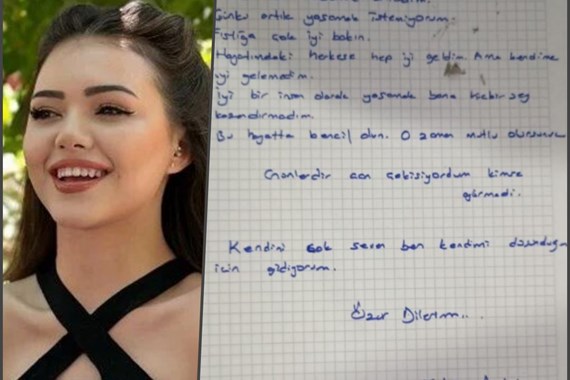 Çünkü artık yaşamak istemiyorum.
Fıstığa çok iyi bakın.
Hayatımdaki herkese hep iyi geldim. Ama kendime
iyi gelemedim.
İyi bir insan olarak yaşamak bana hiçbir şey
kazandırmadım.
Bu hayatta bencil olun. O zaman mutlu olursunuz
can çekişiyordum kimse
görmedi.
Kendini çok seven ben kendimi
için gidiyorum.
Özür Dilerim...